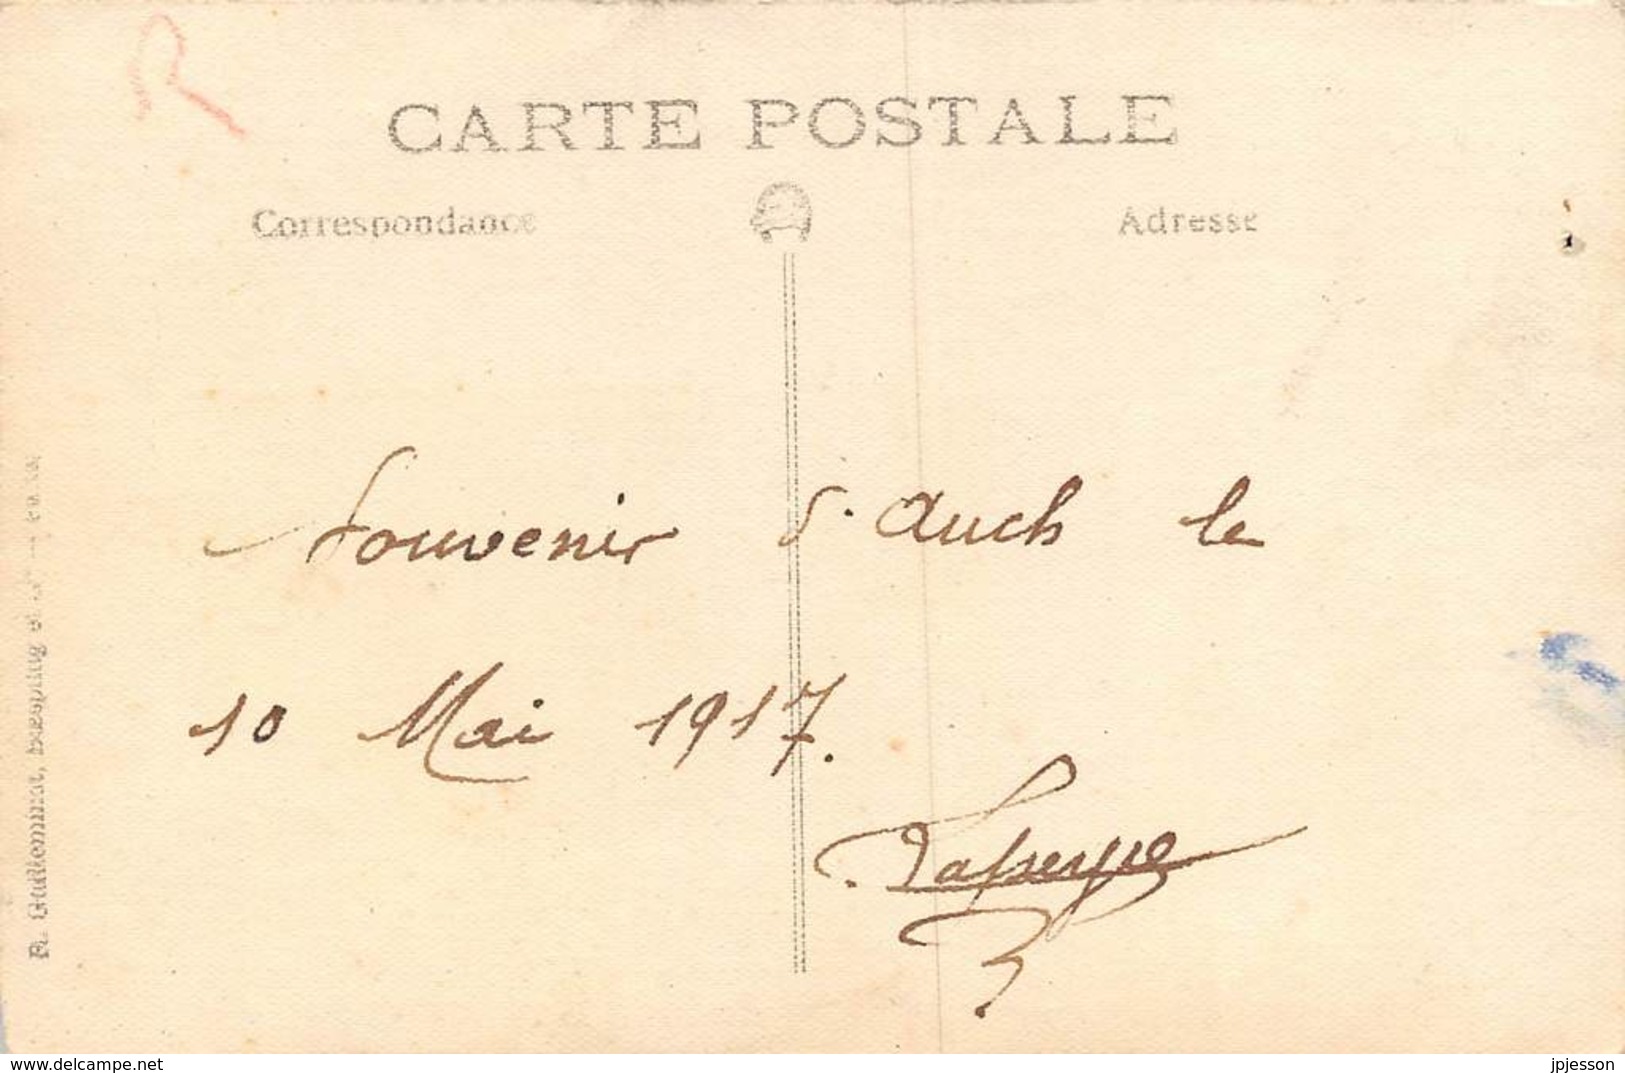 CARTE POSTALE
Correspondance
Adresse
Souvenir d'Auch le
10 Mai 1917.
Lapeyre
R. Guilleminot, Bœspflug et
www.delcampe.net
jpjesson